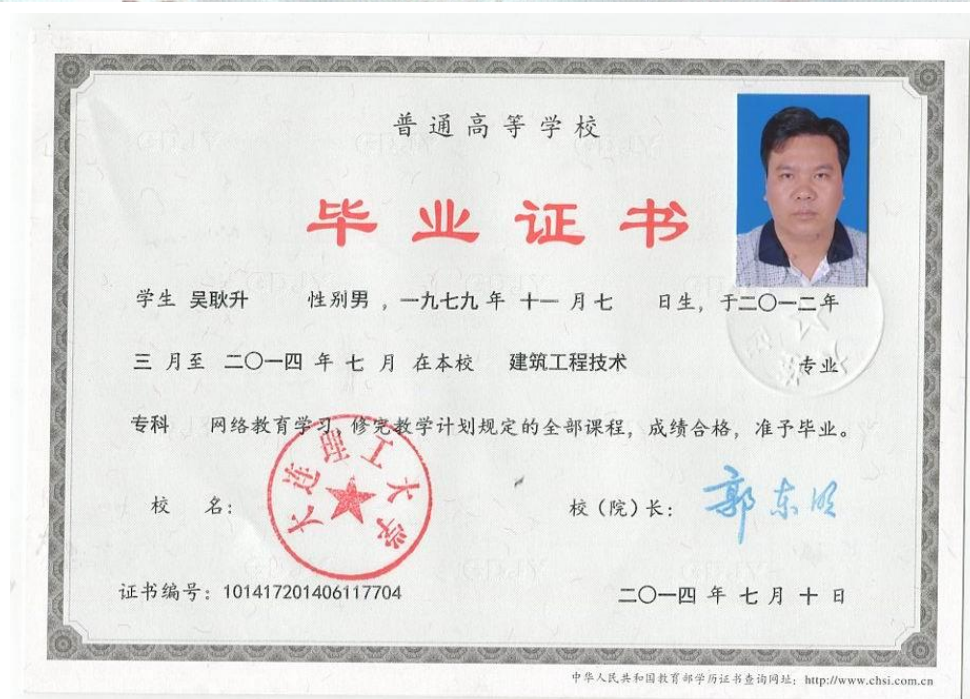 普通高等学校
毕业证书
学生 吴耿升 性别男，一九七九年 十一月七 日生，于二〇一二年
三 月至 二〇一四 年 七 月 在本校 建筑工程技术 专业
专科 网络教育学习，修完教学计划规定的全部课程，成绩合格，准予毕业。
大连理工大学
校 名： 校（院）长： 郭东明
证书编号：101417201406117704 二〇一四 年 七 月 十 日
中华人民共和国教育部学历证书查询网址：http://www.chsi.com.cn